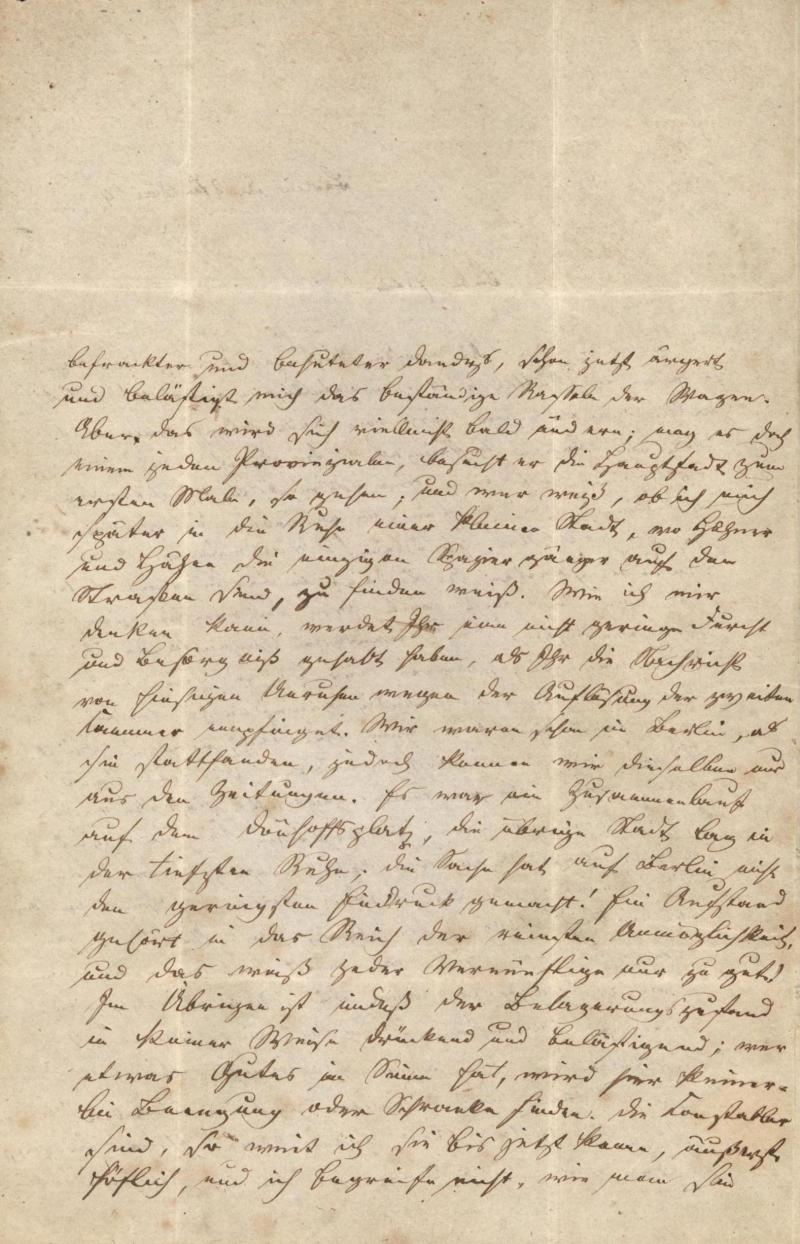 befrackter und behuteter Dandys, schon jetzt ärgert
und belästigt mich das beständige Rasseln der Wagen.
Aber, das wird sich vielleicht bald ändern; mag es doch
einem jeden Provinzialen, besucht er die Hauptstadt zum
ersten Male, so gehen; und wer weiß, ob ich mich
später in die Ruhe einer kleinen Stadt, wo Hühner
und Hähne die einzigen Spaziergänger auf den
Straßen sind, zu finden weiß. Wie ich mir
denken kann, werdet Ihr eine nicht geringe Furcht
und Besorgniß gehabt haben, als Ihr die Nachricht
von hiesigen Unruhen wegen der Auflösung der zweiten
Kammer empfinget. Wir waren schon in Berlin, als
sie stattfanden, jedoch kennen wir dieselben nur
aus den Zeitungen. Es war ein Zusammenlauf
auf dem Dönhoffsplatz, die übrige Stadt lag in
der tiefsten Ruhe; die Sache hat auf Berlin nicht
den geringsten Eindruck gemacht! Ein Aufstand
gehört in das Reich der reinsten Unmöglichkeit,
und das weiß jeder Vernünftige nur zu gut!
Im Übrigen ist indeß der Belagerungszustand
in keiner Weise drückend und belästigend; wer
etwas Gutes im Sinne hat, wird hier keiner-
lei Beengung oder Schranke finden. Die Konstabler
sind, so weit ich sie bis jetzt kenne, äußerst
höflich, und ich begreife nicht, wie man sie